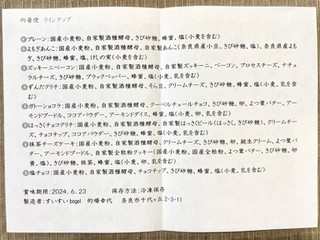 ◎プレーン：国産小麦粉、自家製酒種酵母、きび砂糖、蜂蜜、塩（小麦を含む）
◎よもぎあんこ：国産小麦粉、自家製酒種酵母、自家製あんこ（奈良県産小豆、きび砂糖、塩）、奈良県産よも
ぎ、きび砂糖、蜂蜜、塩、けしの実（小麦を含む）
◎ズッキーニベーコン：国産小麦粉、自家製酒種酵母、自家製ズッキーニ、ベーコン、プロセスチーズ、ナチュ
ラルチーズ、きび砂糖、ブラックペッパー、蜂蜜、塩（小麦、乳を含む）
◎ずんだグリチ：国産小麦粉、自家製酒種酵母、そら豆、クリームチーズ、きび砂糖、蜂蜜、塩（小麦、乳を含
む）
◎ガトーショコラ：国産小麦粉、自家製酒種酵母、クーベルチュールチョコ、きび砂糖、卵、よつ葉バター、アー
モンドプードル、ココアパウダー、アーモンドダイス、蜂蜜、塩（小麦、卵、乳を含む）
◎はっさくチョコグリチ：国産小麦粉、自家製酒種酵母、自家製はっさくピール（はっさく、きび砂糖）、クリームチー
ズ、チョコチップ、ココアパウダー、きび砂糖、蜂蜜、塩（小麦、乳を含む）
◎抹茶チーズケーキ：国産小麦粉、自家製酒種酵母、クリームチーズ、きび砂糖、卵、純生クリーム、よつ葉バ
ター、アーモンドプードル、自家製全粒粉クッキー（国産小麦粉、国産全粒粉、よつ葉バター、きび砂糖、卵
黄、塩）、きび砂糖、抹茶、蜂蜜、塩（小麦、卵、乳を含む）
◎塩チョコ：国産小麦粉、自家製酒種酵母、チョコチップ、きび砂糖、蜂蜜、塩（小麦、乳を含む）
賞味期限：2024.6.23　保存方法：冷凍保存
製造者：すいすいbagel　的場幸代　奈良市千代ヶ丘2-3-11